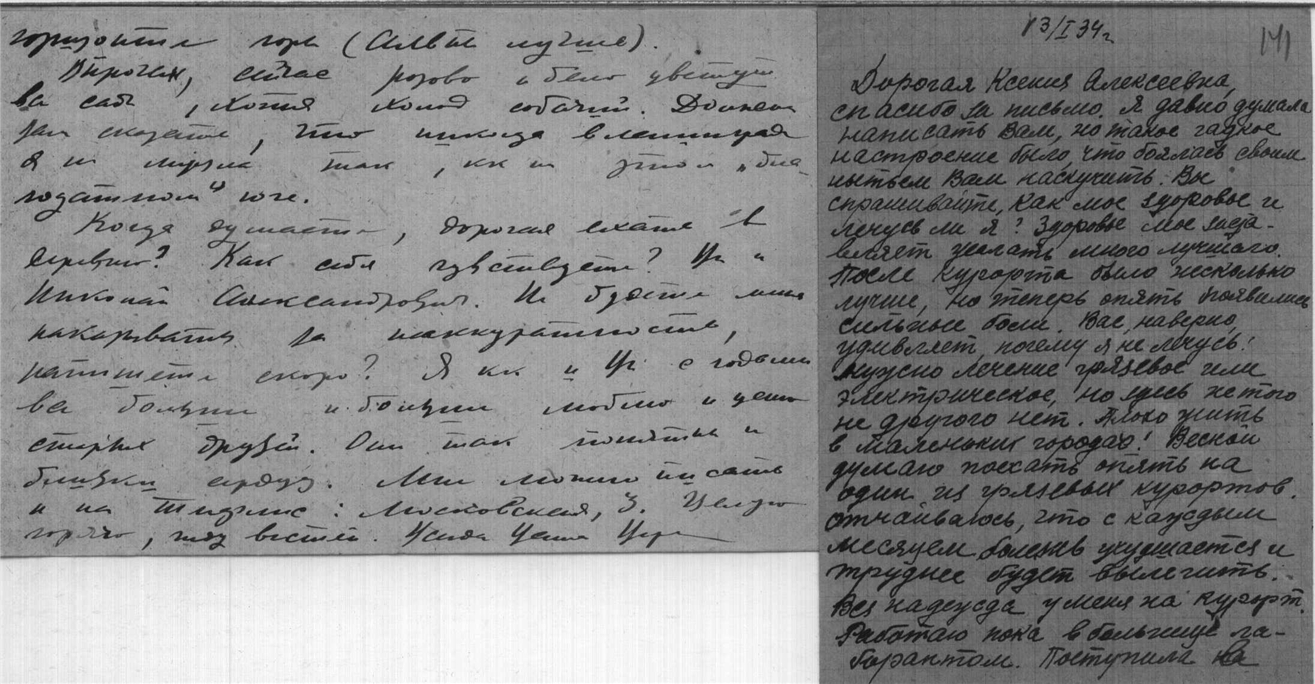 горизонте горы (Алвы лучше).
Впрочем, сейчас розово и бело цветут
все сады, хотя холод собачий. Должна
Вам сказать, что никогда в Ленинграде
я не мерзла так, как на этом „бла-
годатном“ юге.
Когда думаете, дорогая ехать в
деревню? Как себя чувствуете? и
Николай Александрович. Не будете меня
наказывать за неаккуратность,
напишете скоро? Я как и с годами
все больше и больше люблю и ценю
старых друзей. Они так понятны и
близки сердцу. Мне можно писать
и на Тифлис: Московская, 3. Целую
горячо, жду вестей. Ваша
13/I 34 г.
141
Дорогая Ксения Алексеевна,
спасибо за письмо. Я давно думала
написать Вам, но такое гадкое
настроение было, что боялась своим
нытьем Вам наскучить. Вы
спрашиваете, как мое здоровье и
лечусь ли я? Здоровье мое заста-
вляет желать много лучшего.
После курорта было несколько
лучше, но теперь опять появились
сильные боли. Вас, наверно,
удивляет, почему я не лечусь!
Нужно лечение грязевое или
электрическое, но здесь не того
не другого нет. Плохо жить
в маленьких городах! Весной
думаю поехать опять на
один из грязевых курортов.
Отчаиваюсь, что с каждым
месяцем болезнь ухудшается и
труднее будет вылечить.
Вся надежда у меня на курорт.
Работаю пока в больнице ла-
борантом. Поступила на